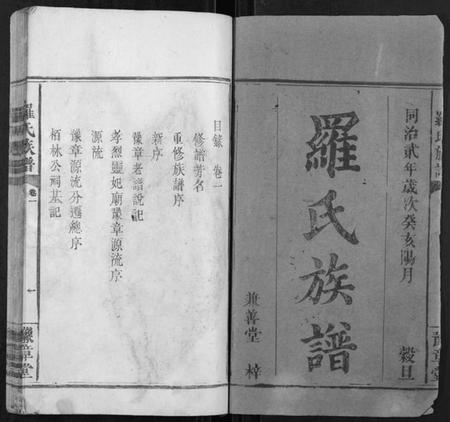 羅氏族譜
同治貳年歲次癸亥陽月 穀旦
羅氏族譜
兼善堂 梓
豫章堂
目錄 卷一
修譜芳名
重修族譜序
新序
豫章老譜說記
孝烈靈妃廟豫章源流序
源流
豫章源流分遷總序
栢林公祠墓記
羅氏族譜
卷一
一
豫章堂